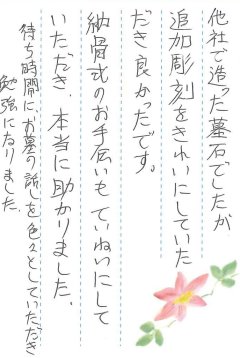 他社で造った墓石でしたが
追加彫刻をきれいにしていた
だき良かったです。
納骨式のお手伝いもていねいにして
いただき、本当に助かりました。
待ち時間に、お墓の話しを色々としていただき
勉強になりました。